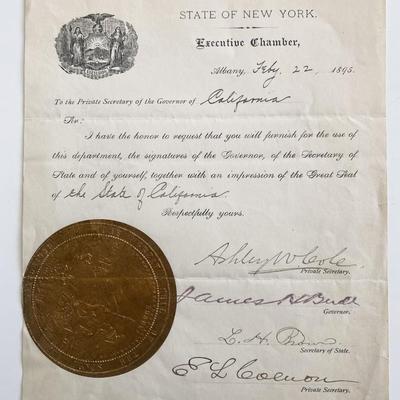 STATE OF NEW YORK.
Executive Chamber,
Albany, Feby. 22, 1895.
To the Private Secretary of the Governor of California
Sir:
I have the honor to request that you will furnish for the use of
this department, the signatures of the Governor, of the Secretary of
State and of yourself, together with an impression of the Great Seal
of the State of California.
Respectfully yours,
Ashley W. Cole
Private Secretary.
James H Budd
Governor.
L. H. Brown
Secretary of State.
E L
Private Secretary.